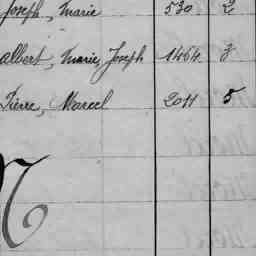 Joseph, Marie 530 2
Albert, Marie, Joseph 1464 3
Pierre, Marcel 2011 5
N